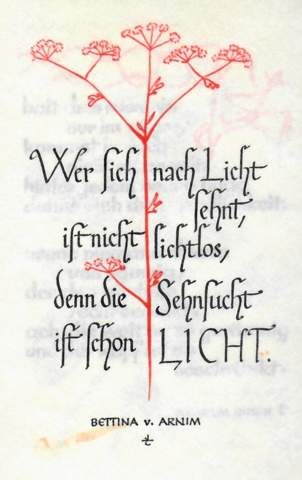 Wer sich nach Licht
sehnt,
ist nicht lichtlos,
denn die Sehnsucht
ist schon LICHT.
BETTINA v. ARNIM